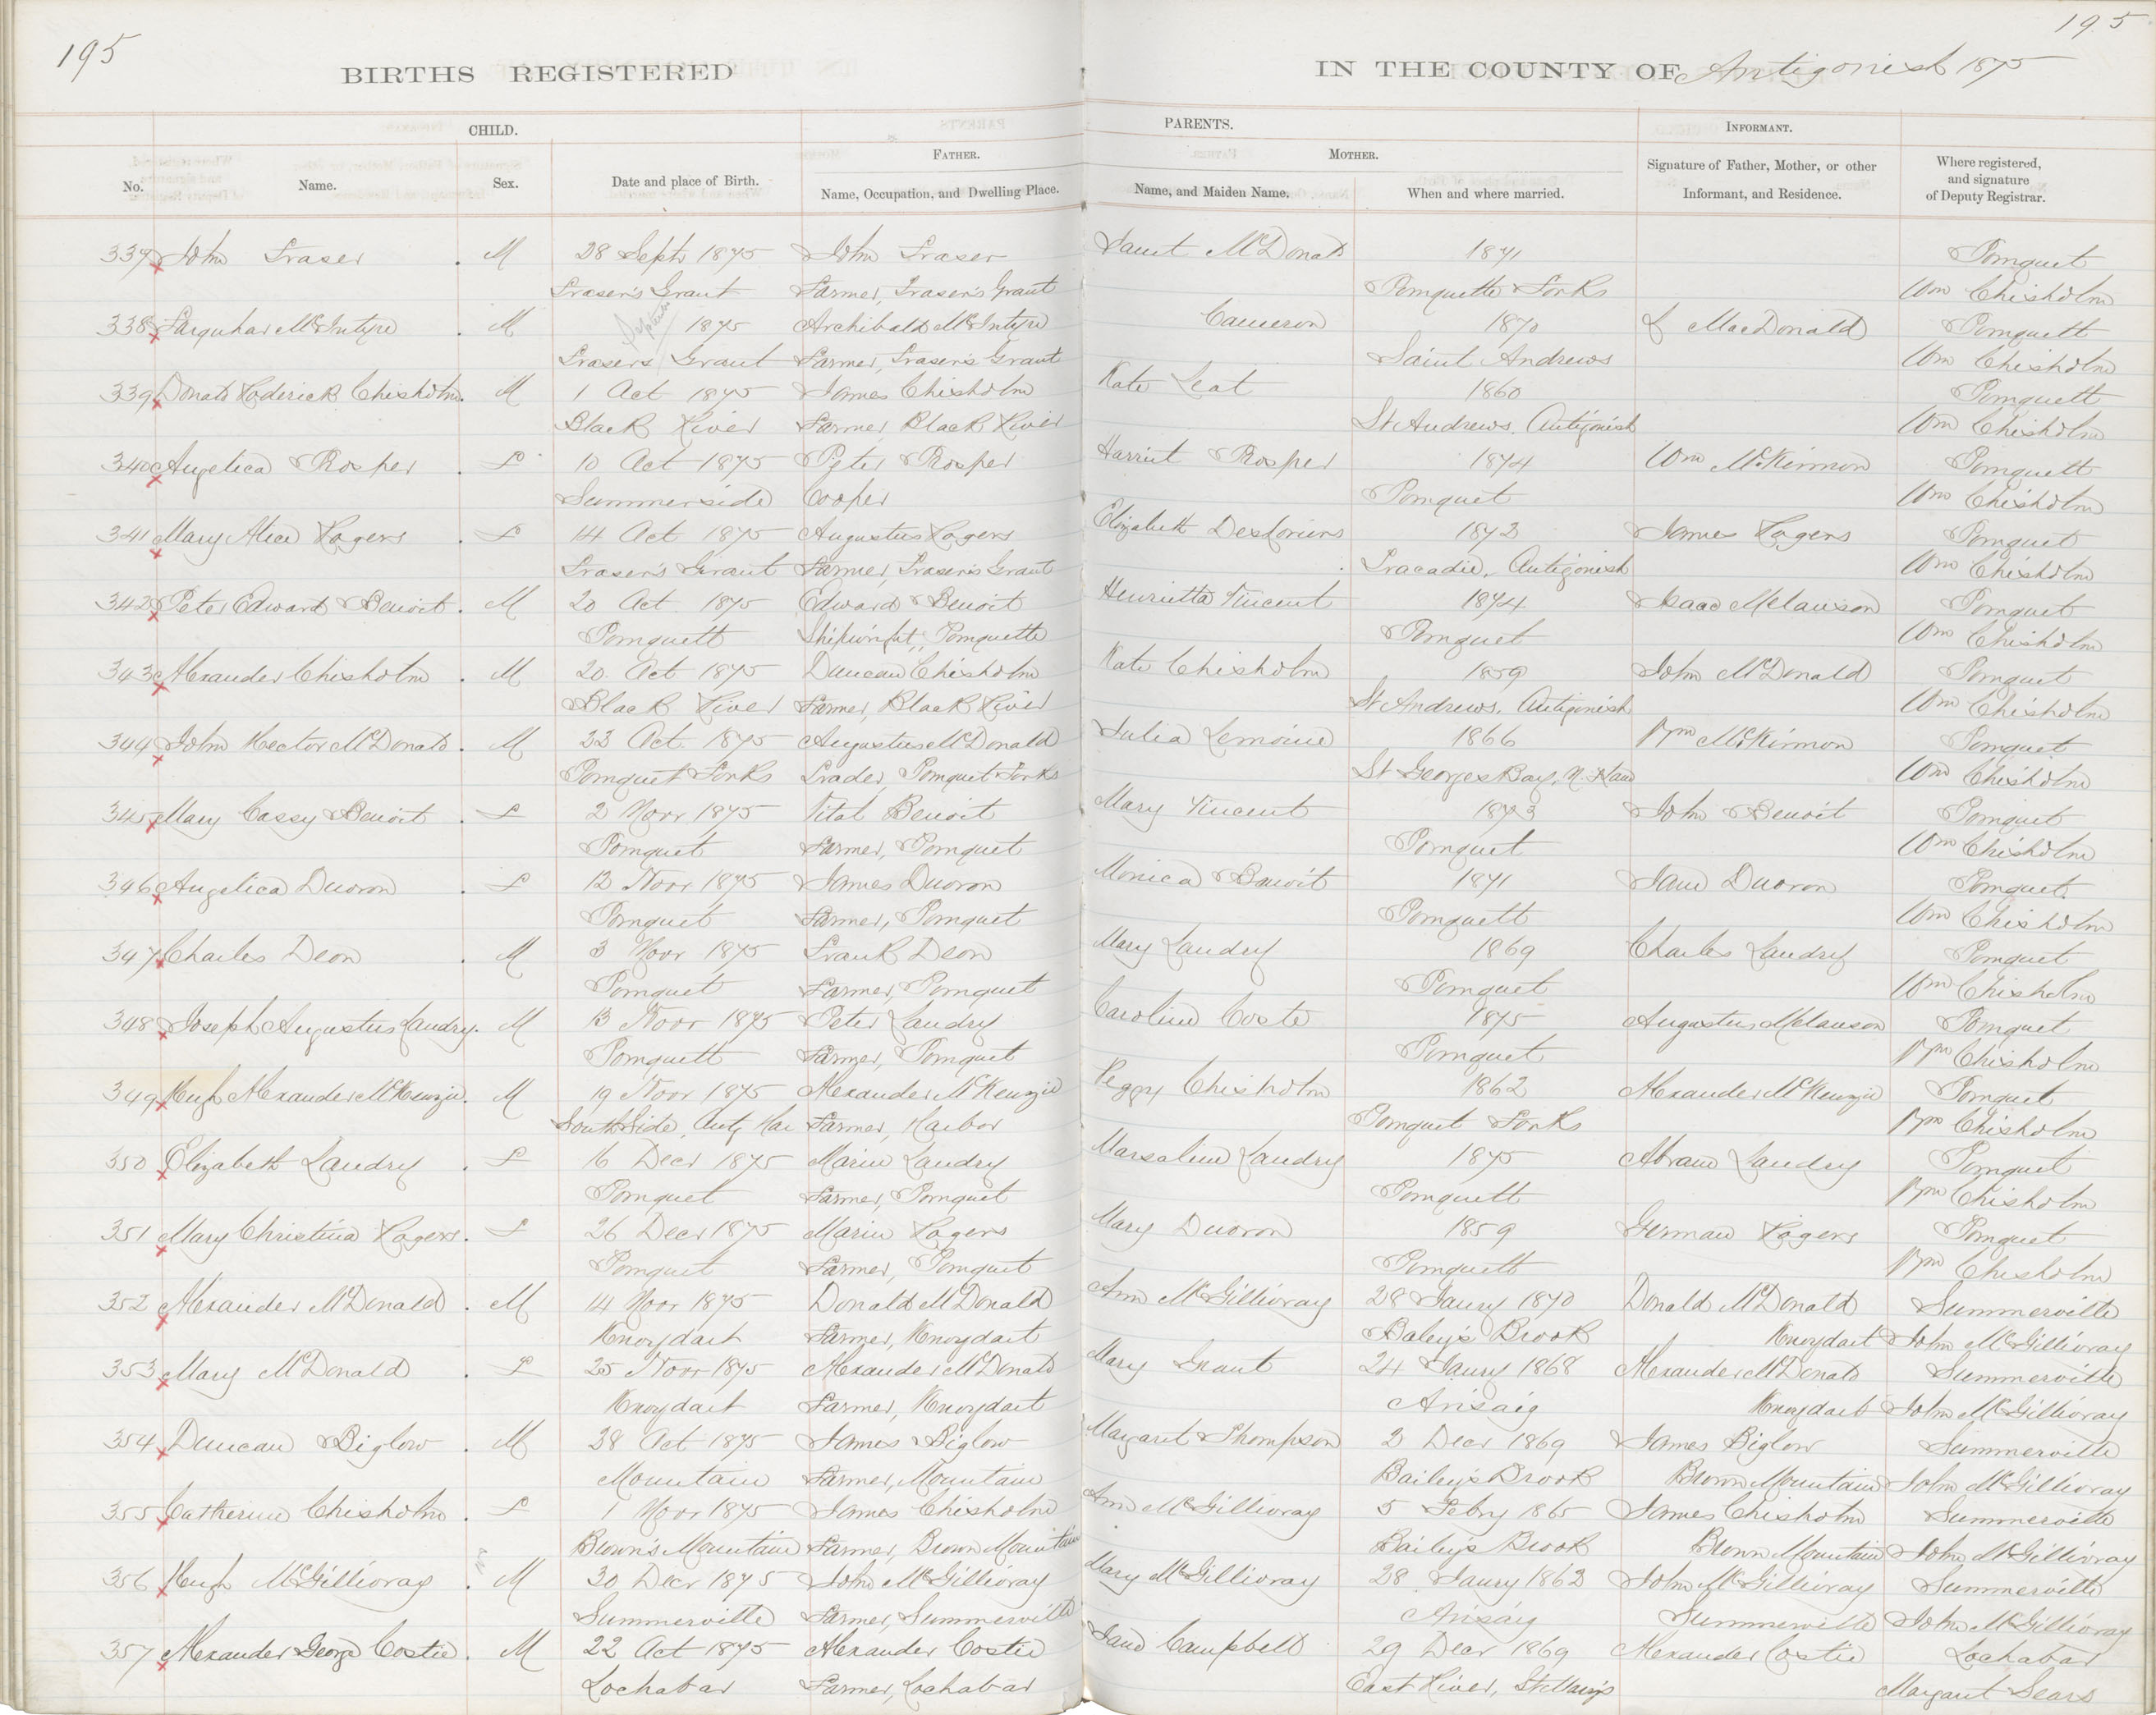 195
195
BIRTHS REGISTERED
IN THE COUNTY OF Antigonish 1875
CHILD.
PARENTS.
INFORMANT.
FATHER.
MOTHER.
No.
Name.
Sex.
Date and place of Birth.
Name, Occupation, and Dwelling Place.
Name, and Maiden Name.
When and where married.
Signature of Father, Mother, or other Informant, and Residence.
Where registered, and signature of Deputy Registrar.
337 John Fraser M 28 Sept 1875 John Fraser Janet McDonald 1871 Pomquet
Fraser's Grant Farmer, Fraser's Grant Pomquette Forks Wm Chisholm
338 Farquhar McIntyre M 1875 Archibald McIntyre Cameron 1870 MacDonald Pomquett
Frasers Grant Farmer, Fraser's Grant Saint Andrews Wm Chisholm
339 Donald Roderick Chisholm M 1 Oct 1875 James Chisholm Kate 1860 Pomquett
Black River Farmer, Black River St Andrews, Antigonish Wm Chisholm
340 Angelica Prosper F 10 Oct 1875 Peter Prosper Harriet Prosper 1874 Wm McKinnon Pomquett
Summerside Cooper Pomquet Wm Chisholm
341 Mary Alice Rogers F 14 Oct 1875 Augustus Rogers Elizabeth Desloriers 1873 James Rogers Pomquet
Fraser's Grant Farmer, Fraser's Grant Tracadie, Antigonish Wm Chisholm
342 Peter Edward Benoit M 20 Oct 1875 Edward Benoit Henrietta Vincent 1874 Isaac Melanson Pomquet
Pomquett Shipwright, Pomquette Pomquet Wm Chisholm
343 Alexander Chisholm M 20 Oct 1875 Duncan Chisholm Kate Chisholm 1859 John McDonald Pomquet
Black River Farmer, Black River St Andrews, Antigonish Wm Chisholm
344 John Hector McDonald M 22 Oct 1875 Augustus McDonald Julia Lemoine 1866 Wm McKinnon Pomquet
Pomquet Forks Trader, Pomquet Forks St Georges Bay, Wm Chisholm
345 Mary Cassy Benoit F 2 Novr 1875 Vital Benoit Mary Vincent 1873 John Benoit Pomquet
Pomquet Farmer, Pomquet Pomquet Wm Chisholm
346 Angelica Duoron F 12 Novr 1875 James Duoron Monica Benoit 1871 Jane Duoron Pomquet
Pomquet Farmer, Pomquet Pomquett Wm Chisholm
347 Charles Deon M 3 Novr 1875 Frank Deon Mary Landry 1869 Charles Landry Pomquet
Pomquet Farmer, Pomquet Pomquet Wm Chisholm
348 Joseph Augustus Landry M 13 Novr 1875 Peter Landry Caroline Coste 1875 Augustus Melanson Pomquet
Pomquett Farmer, Pomquet Pomquet Wm Chisholm
349 Hugh Alexander McKenzie M 19 Novr 1875 Alexander McKenzie Peggy Chisholm 1862 Alexander McKenzie Pomquet
South Side, Antg Har Farmer, Harbor Pomquet Forks Wm Chisholm
350 Elizabeth Landry F 16 Decr 1875 Marin Landry Marsaline Landry 1875 Abram Landry Pomquet
Pomquet Farmer, Pomquet Pomquett Wm Chisholm
351 Mary Christina Rogers F 26 Decr 1875 Marin Rogers Mary Duoron 1859 German Rogers Pomquet
Pomquet Farmer, Pomquet Pomquett Wm Chisholm
352 Alexander McDonald M 14 Novr 1875 Donald McDonald Ann McGillivray 28 Janry 1870 Donald McDonald Summerville
Knoydart Farmer, Knoydart Baley's Brook Knoydart John McGillivray
353 Mary McDonald F 25 Novr 1875 Alexander McDonald Mary Grant 24 Janry 1868 Alexander McDonald Summerville
Knoydart Farmer, Knoydart Arisaig Knoydart John McGillivray
354 Duncan Biglow M 28 Oct 1875 James Biglow Margaret Thompson 2 Decr 1869 James Biglow Summerville
Mountain Farmer, Mountain Bailey's Brook Brown Mountain John McGillivray
355 Catherine Chisholm F 1 Novr 1875 James Chisholm Ann McGillivray 5 Febry 1865 James Chisholm Summerville
Brown's Mountain Farmer, Brown Mountain Bailey's Brook Brown Mountain John McGillivray
356 Hugh McGillivray M 30 Decr 1875 John McGillivray Mary McGillivray 28 Janry 1862 John McGillivray Summerville
Summerville Farmer, Summerville Arisaig Summerville John McGillivray
357 Alexander George Costie M 22 Oct 1875 Alexander Costie Jane Campbell 29 Decr 1869 Alexander Costie Lochabar
Lochabar Farmer, Lochabar East River, St Mary's Margaret Sears